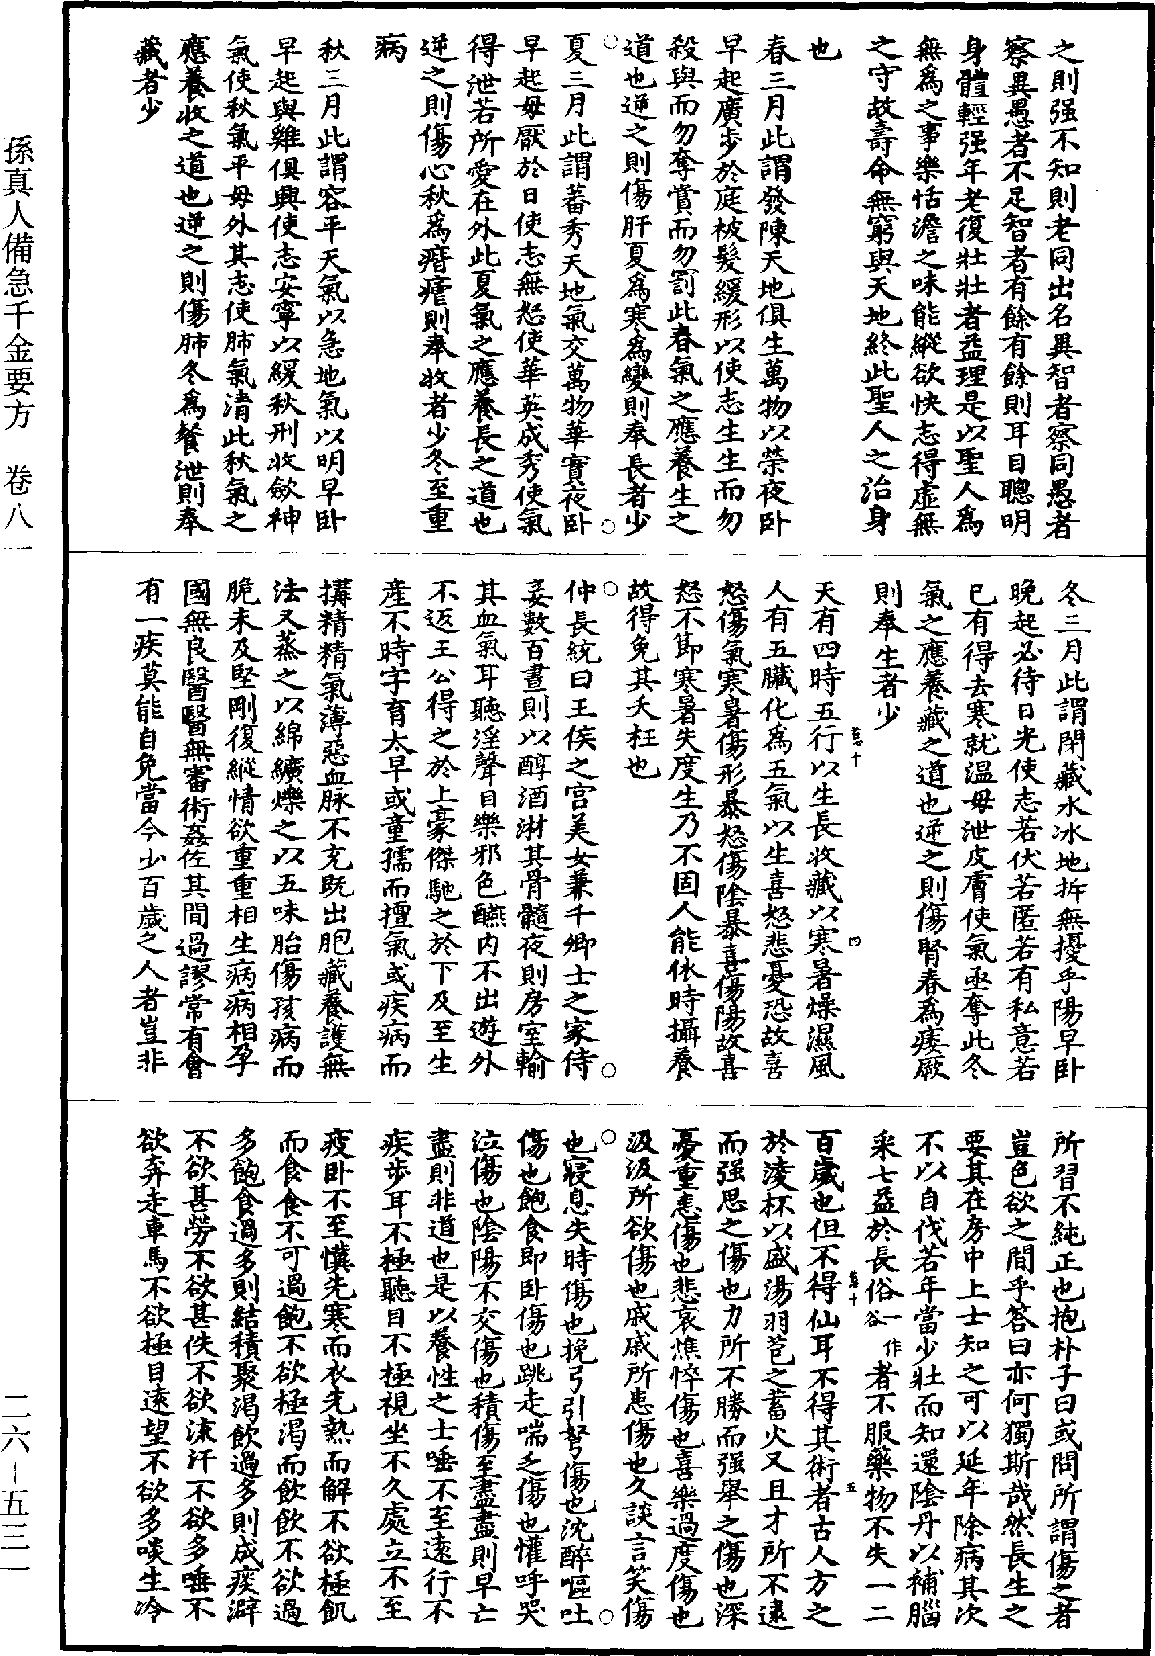 之則强不知則老同出名異智者察同愚者
察異愚者不足智者有餘有餘則耳目聰明
身體輕强年老復壯壯者益理是以聖人為
無為之事樂恬澹之味能縱欲快志得虛無
之守故壽命無窮與天地終此聖人之治身
也
春三月此謂發陳天地俱生萬物以榮夜卧
早起廣步於庭被髮緩形以使志生生而勿
殺與而勿奪賞而勿罰此春氣之應養生之
道也逆之則傷肝夏為寒為變則奉長者少
夏三月此謂蕃秀天地氣交萬物華實夜卧
早起毋厭於日使志無怒使華英成秀使氣
得泄若所愛在外此夏氣之應養長之道也
逆之則傷心秋為痎瘧則奉收者少冬至重
病
秋三月此謂容平天氣以急地氣以明早卧
早起與雞俱興使志安寧以緩秋刑收斂神
氣使秋氣平毋外其志使肺氣清此秋氣之
應養收之道也逆之則傷肺冬為飱泄則奉
藏者少
冬三月此謂閉藏水冰地拆無擾乎陽早卧
晚起必待日光使志若伏若匿若有私意若
已有得去寒就温毋泄皮膚使氣亟奪此冬
氣之應養藏之道也逆之則傷腎春為痿厥
則奉生者少
天有四時五行以生長收藏以寒暑燥濕風
人有五臟化為五氣以生喜怒悲憂恐故喜
怒傷氣寒暑傷形暴怒傷陰暴喜傷陽故喜
怒不節寒暑失度生乃不固人能依時攝養
故得免其夭枉也
仲長統曰王侯之宮美女兼千卿士之家侍
妾數百晝則以醇酒淋其骨髓夜則房室輸
其血氣耳聽淫聲目樂邪色醼内不出遊外
不返王公得之於上豪傑馳之於下及至生
產不時字育太早或童孺而擅氣或疾病而
搆精精氣薄惡血脉不充既出胞藏養護無
法又蒸之以綿纊爍之以五味胎傷孩病而
脆未及堅剛復縱情欲重重相生病病相孕
國無良醫醫無審術姦佐其間過謬常有會
有一疾莫能自免當今少百歲之人者豈非
所習不純正也抱朴子曰或問所謂傷之者
豈色欲之間乎答曰亦何獨斯哉然長生之
要其在房中上士知之可以延年除病其次
不以自伐若年當少壯而知還陰丹以補腦
采七益於長俗一作谷者不服藥物不失一二
百歲也但不得仙耳不得其術者古人方之
於淩杯以盛湯羽苞之蓄火又且才所不逮
而强思之傷也力所不勝而强舉之傷也深
憂重恚傷也悲哀憔悴傷也喜樂過度傷也
汲汲所欲傷也戚戚所患傷也久談言笑傷
也寢息失時傷也挽弓引弩傷也沈醉嘔吐
傷也飽食即卧傷也跳走喘乏傷也懽呼哭
泣傷也陰陽不交傷也積傷至盡盡則早亡
盡則非道也是以養性之士唾不至遠行不
疾步耳不極聽目不極視坐不久處立不至
疲卧不至懻先寒而衣先熱而解不欲極飢
而食食不可過飽不欲極渴而飲飲不欲過
多飽食過多則結積聚渴飲過多則成痰澼
不欲甚勞不欲甚佚不欲流汗不欲多唾不
欲奔走車馬不欲極目遠望不欲多啖生冷
孫真人備急千金要方　卷八一
二六－五三一